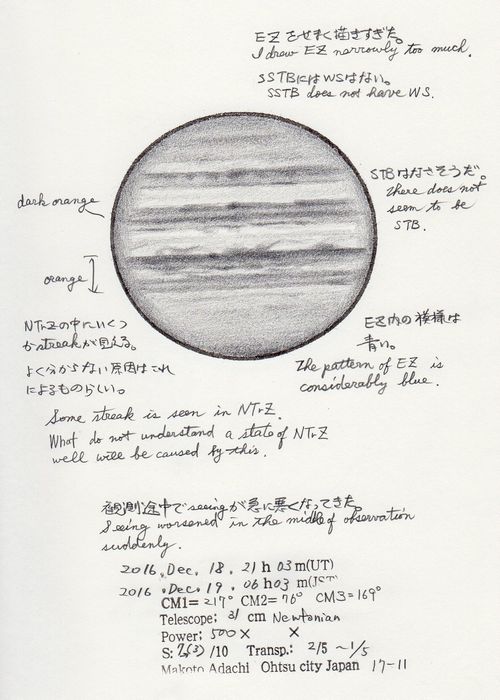 EZをせまく描きすぎた。
I drew EZ narrowly too much.
SSTBにはWSはない。
SSTB does not have WS.
STBはなさそうだ。
There does not
seem to be
STB.
dark orange
orange
NTrZの中にいくつ
かstreakが見える。
よく分からない原因はこれ
によるものらしい。
EZ内の模様は
青い。
The pattern of EZ is
considerably blue.
Some streak is seen in NTrZ.
What do not understand a state of NTrZ
well will be caused by this.
観測途中でseeingが急に悪くなってきた。
Seeing worsened in the middle of observation
suddenly.
2016. Dec. 18. 21h 03m(UT)
2016. Dec. 19. 06h03m(JST)
CM1= 217° CM2= 76° CM3=169°
Telescope: 31 cm Newtonian
Power: 500× ×
S: /10 Transp.: 2/5 ~1/5
Makoto Adachi Ohtsu city Japan 17-11